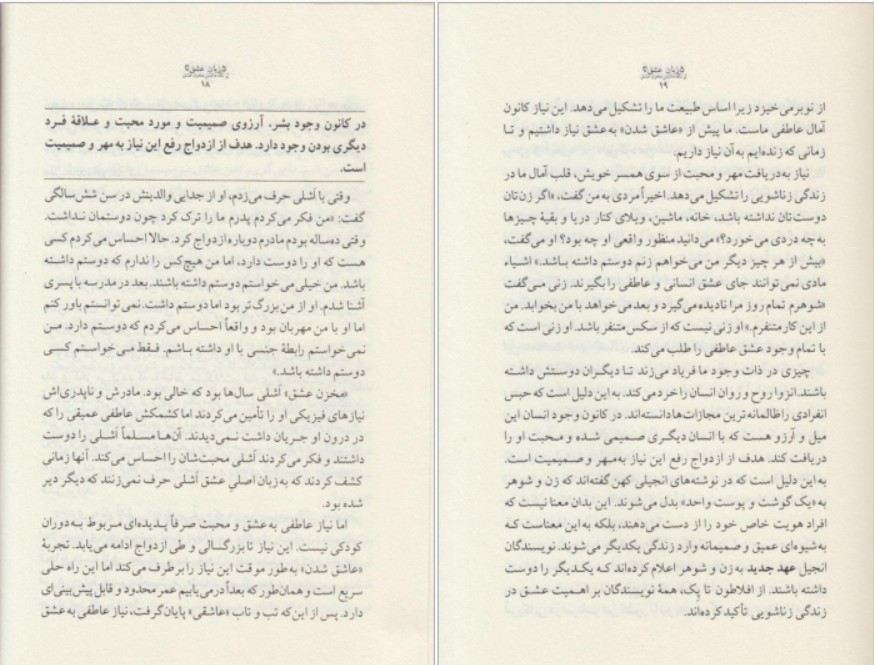 ۵ زبان عشق
۱۸
در کانون وجود بشر، آرزوی صمیمیت و مورد محبت و علاقهٔ فرد
دیگری بودن وجود دارد. هدف از ازدواج رفع این نیاز به مهر و صمیمیت
است.
وقتی با اَشلی حرف می‌زدم، او از جدایی والدینش در سن شش‌سالگی
گفت: «من فکر می‌کردم پدرم ما را ترک کرد چون دوستمان نداشت.
وقتی ده‌ساله بودم مادرم دوباره ازدواج کرد. حالا احساس می‌کردم کسی
هست که او را دوست دارد، اما من هیچ‌کس را ندارم که دوستم داشته
باشد. من خیلی می‌خواستم دوستم داشته باشند. بعد در مدرسه با پسری
آشنا شدم. او از من بزرگ‌تر بود اما دوستم داشت. نمی‌توانستم باور کنم
اما او با من مهربان بود و واقعاً احساس می‌کردم که دوستم دارد. مـن
نمی‌خواستم رابطهٔ جنسی با او داشته باشم. فـقط مـی‌خواسـتم کسـی
دوستم داشته باشد.»
«مخزن عشق» اَشلی سال‌ها بود که خالی بود. مادرش و ناپدری‌اش
نیازهای فیزیکی او را تأمین می‌کردند اما کشمکش عاطفی عمیقی را که
در درون او جریان داشت نـمی‌دیدند. آن‌هـا مسـلماً اَشـلی را دوست
داشتند و فکر می‌کردند اَشلی محبت‌شان را احساس می‌کند. آنها زمانی
کشف کردند که به‌زبان اصلیِ عشق اَشلی حرف نمی‌زنند که دیگر دیر
شده بود.
اما نیاز عاطفی به‌عشق و محبت صرفاً پدیده‌ای مربوط به‌دوران
کودکی نیست. این نیاز تا بزرگسالی و طی ازدواج ادامه می‌یابد. تجربهٔ
«عاشق شدن» به‌طور موقت این نیاز را برطرف می‌کند اما این راه حلّی
سریع است و همان‌طور که بعداً درمی‌یابیم عمر محدود و قابل پیش‌بینی‌ای
دارد. پس از این که تب و تاب «عاشقی» پایان گرفت، نیاز عاطفی به عشق
۵ زبان عشق
۱۹
از نو برمی‌خیزد زیرا اساس طبیعت ما را تشکیل می‌دهد. این نیاز کانون
آمال عاطفی ماست. ما پیش از «عاشق شدن» به‌عشق نیاز داشتیم و تـا
زمانی که زنده‌ایم به آن نیاز داریم.
نیاز به‌دریافت مهر و محبت از سوی همسر خویش، قلب آمال ما در
زندگی زناشویی را تشکیل می‌دهد. اخیراً مردی به من گفت، «اگر زن‌تان
دوست‌تان نداشته باشد، خانه، ماشین، ویلای کنار دریا و بقیهٔ چیزها
به‌چه دردی می‌خورد؟» می‌دانید منظور واقعی او چه بود؟ او می‌گفت،
«بیش از هر چیز دیگر من می‌خواهم زنم دوستم داشته بـاشد.» اشـیاء
مادی نمی‌توانند جای عشق انسانی و عاطفی را بگیرند. زنی مـی‌گفت
«شوهرم تمام روز مرا نادیده می‌گیرد و بعد می‌خواهد با من بخوابد. من
از این کار متنفرم.» او زنی نیست که از سکس متنفر باشد. او زنی است که
با تمام وجود عشق عاطفی را طلب می‌کند.
چیزی در ذات وجود ما فریاد می‌زند تـا دیگـران دوسـتش داشـته
باشند. انزوا روح و روان انسان را خرد می‌کند. به این دلیل است که حبس
انفرادی را ظالمانه‌ترین مجازات‌ها دانسته‌اند. در کانون وجود انسان این
میل و آرزو هست که با انسان دیگـری صمیمی شده و مـحبت او را
دریافت کند. هدف از ازدواج رفع این نیاز به‌مهر و صـمیمیت است.
به این دلیل است که در نوشته‌های انجیلی کهن گفته‌اند که زن و شوهر
به «یک گوشت و پوست واحد» بدل می‌شوند. این بدان معنا نیست که
افراد هویت خاص خود را از دست می‌دهند، بلکه به این معناست کـه
به‌شیوه‌ای عمیق و صمیمانه وارد زندگی یکدیگر می‌شوند. نویسندگان
انجیل عهد جدید به زن و شوهر اعلام کرده‌اند کـه یکـدیگر را دوست
داشته باشند. از افلاطون تا پِک، همهٔ نویسندگان بر اهمیت عشق در
زندگی زناشویی تأکید کرده‌اند.